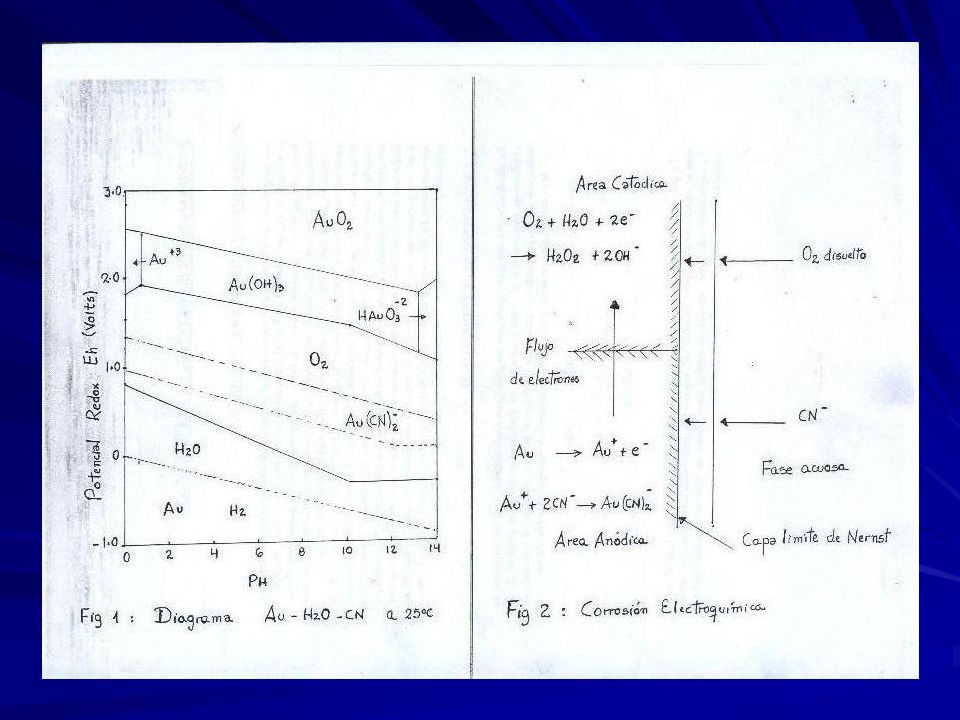 3.0
AuO2
Au+3
2.0
Au(OH)3
HAuO3-2
O2
1.0
Au(CN)2-
H2O
0
Au H2
-1.0
0 2 4 6 8 10 12 14
PH
Potencial Redox Eh (Volts)
Fig 1 : Diagrama Au - H2O - CN a 25°C
Area Catodica
O2 + H2O + 2e-
→ H2O2 + 2OH-
O2 disuelto
Flujo
de electrones
CN-
Au → Au+ + e-
Fase acuosa
Au+ + 2CN- → Au(CN)2-
Area Anódica
Capa limite de Nernst
Fig 2 : Corrosión Electroquímica